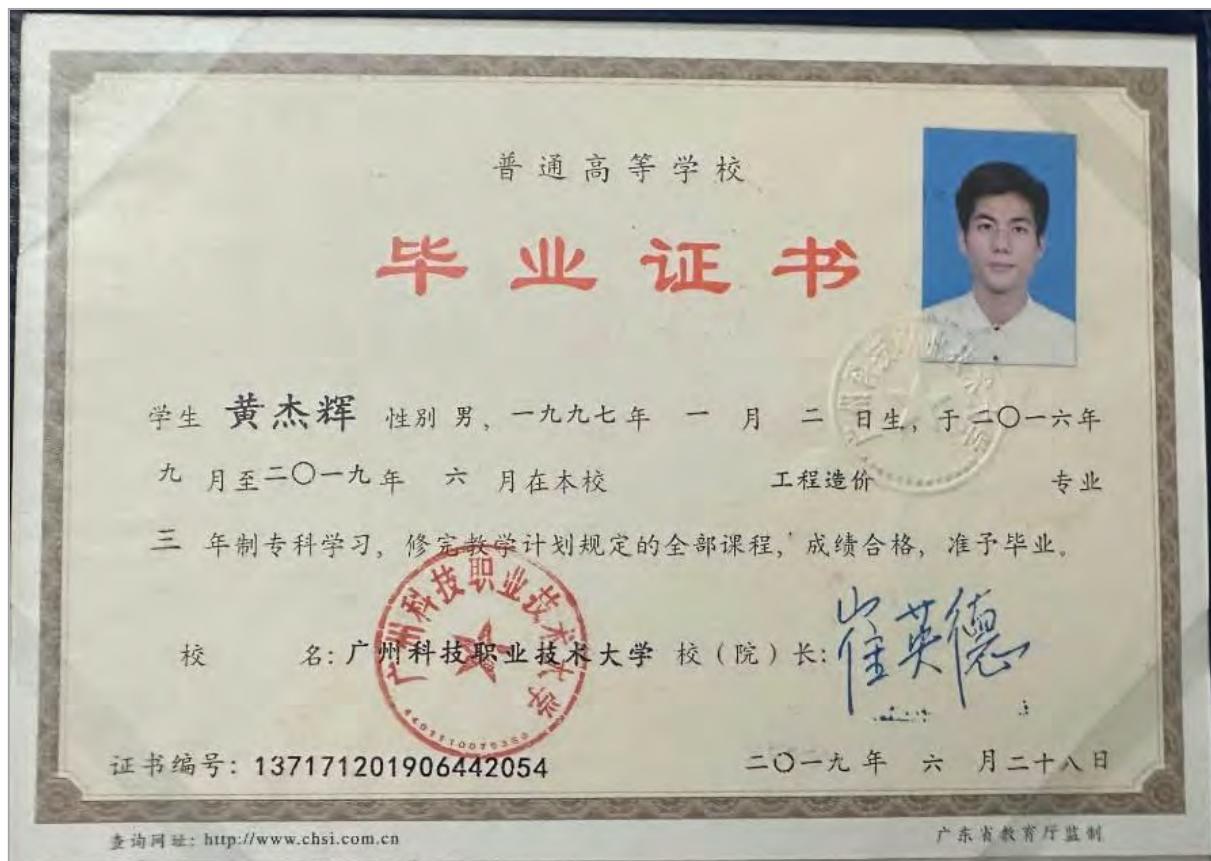 普通高等学校
毕业证书
学生 黄杰辉 性别 男，一九九七年 一 月 二 日生，于二〇一六年
九 月至二〇一九年 六 月在本校 工程造价 专业
三 年制专科学习，修完教学计划规定的全部课程，成绩合格，准予毕业。
广州科技职业技术大学
校 名：广州科技职业技术大学 校（院）长：崔英德
证书编号：137171201906442054 二〇一九年 六 月二十八日
查询网址：http://www.chsi.com.cn 广东省教育厅监制